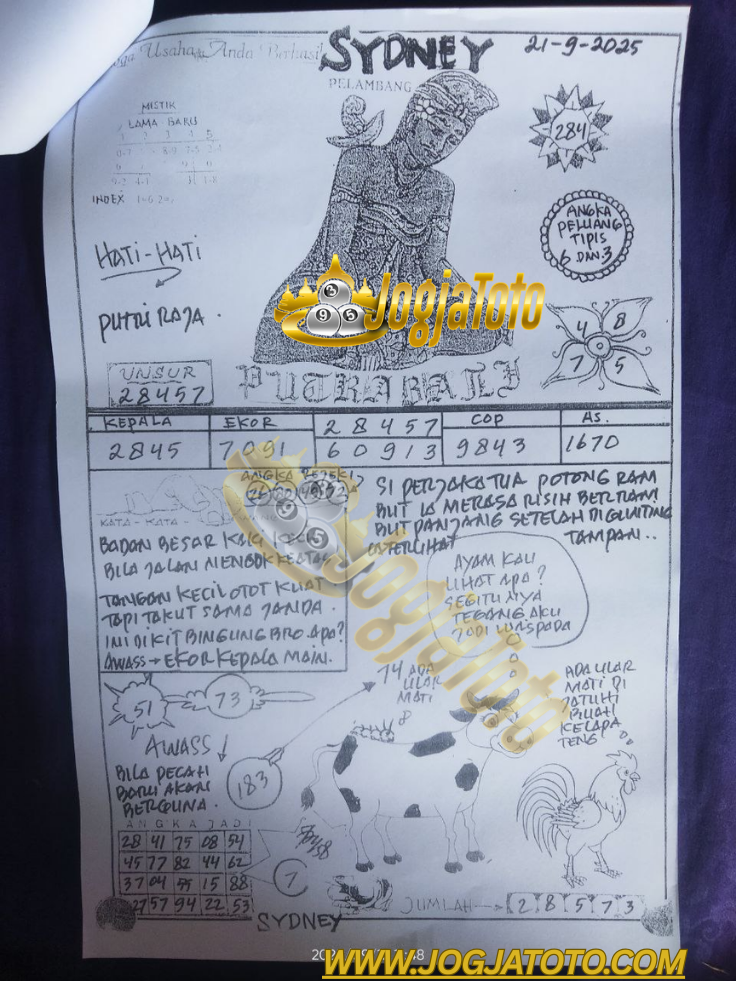 Usaha Anda Berhasil
SYDNEY
21-9-2025
PELAMBANG
MISTIK
LAMA BARU
INDEX
284
ANGKA
PELUANG
TIPIS
6 DAN 3
HATI-HATI
PUTRI RAJA.
JogjaToto
9 5
4 8
7 5
UNSUR
28457
PUTRA BALI
KEPALA EKOR 28457 COP AS.
2845 7091 60913 9843 1670
ANGKA REJEKI
KATA-KATA-
BADAN BESAR KAKI KECIL
BILA JALAN MENGOK KEATAS
TANGAN KECIL OTOT KUAT
TAPI TAKUT SAMA JANDA.
INI DIKIT BINGUNG BRO APA?
AWASS → EKOR KEPALA MAIN.
SI PERJAKA TUA POTONG RAM
BUT IA MERASA RISIH BERRAM
BUT PANJANG SETELAH DIGUNTING
TERLIHAT TAMPAN..
AYAM KAU
LIHAT APA?
SEGITUNYA
TEGANG AKU
JADI WASPADA
JogjaToto
14 ADA
ULAR
MATI
8
ADA ULAR
MATI DI
JATUHI
BUAH
KELAPA
TENG
51
73
AWASS
183
BILA PECAH
BARU AKAN
BERGUNA.
ANGKA JADI
28 41 75 08 54
45 77 82 44 62
37 04 55 15 88
27 57 94 22 53
7
JUMLAH
2 8 5 7 3
SYDNEY
WWW.JOGJATOTO.COM